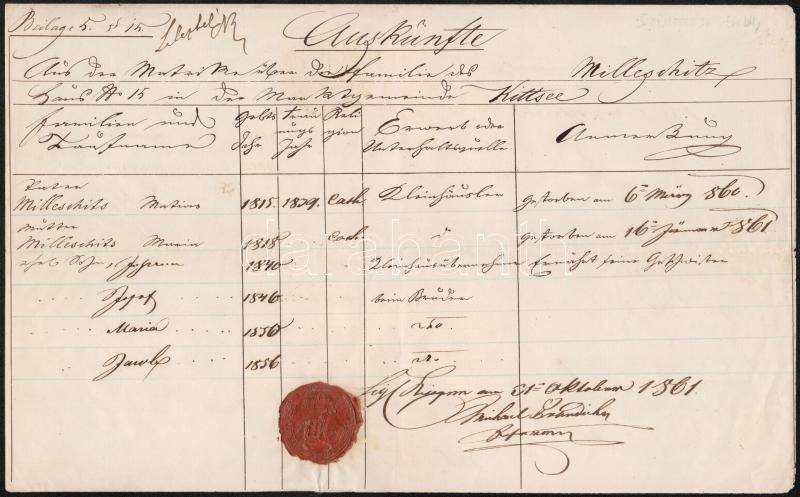 Beilage 5.
Auskünfte
Aus der Matrik über die Familie des Milleschitz
Haus No 15 in der Marktgemeinde Kittsee
Familien und Taufname | Gebts Jahr | Trauungs Jahr | Religion | Erwerb oder Unterhaltsquelle | Anmerkung
Vater
Milleschits Matias 1815 1839. cath. Kleinhäusler Gestorben am 6ten März 860.
Mutter
Milleschits Maria 1818 cath. " Gestorben am 16ten Jänner 861.
ehel Sohn, Johann 1840 Kleinhausübernehmer Ernährt seine Geschwister
Josef 1846 beim Bruder
Maria 1850 dto.
Jacob 1856 dto.
Sig am 31ten Oktober 1861.
Michael
darabanth